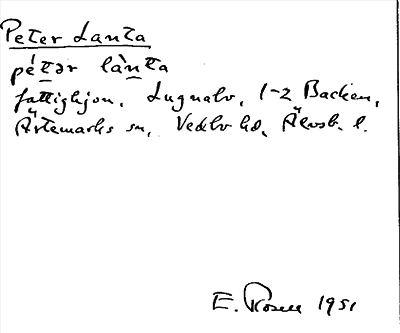 Peter Lanta
pét̲ər làn̲ta
fattighjon, Lugnalv, 1-2 Backen,
Ärtemarks sn, Vedbo hd, Älvsb. l.
E. Rosell 1951